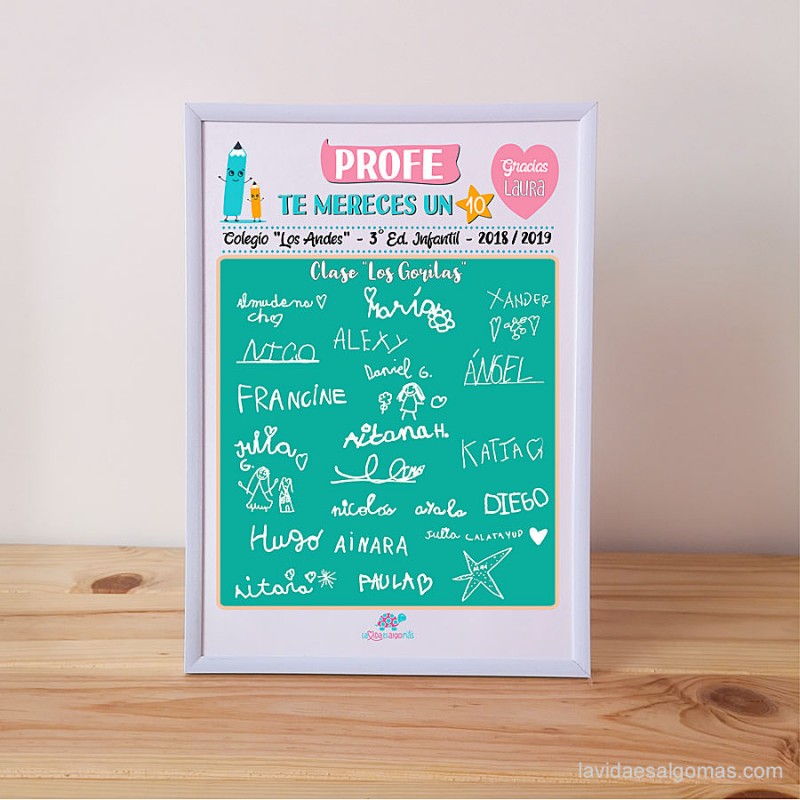 PROFE
TE MERECES UN 10
Gracias
LAURA
Colegio "Los Andes" - 3º Ed. Infantil - 2018 / 2019
Clase "Los Gorilas"
Almudena
cho
María
XANDER
NICO
ALEXY
Daniel G.
ÁNGEL
FRANCINE
Aitana H.
Julia
G.
KATIA
nicolas ayala
DIEGO
Hugo
AINARA
Julia CALATAYUD
Aitana
PAULA
LaVIDAesALGOmás
lavidaesalgomas.com